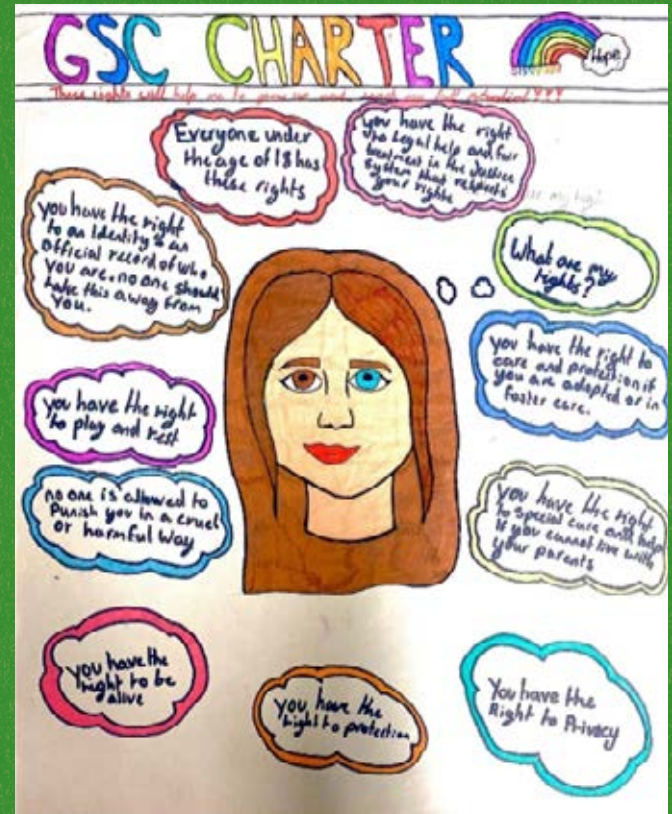 GSC CHARTER
Hope
These rights will help me to grow up and reach my full potential!!!
Everyone under
the age of 18 has
these rights
you have the right
to legal help and fair
treatment in the Justice
system that respects
your rights
you have the right
to an Identity & an
official record of who
you are. no one should
take this away from
you.
What are my
rights?
you have the right to
care and protection if
you are adopted or in
foster care.
you have the right
to play and rest
no one is allowed to
Punish you in a cruel
or harmful way
you have the right
to special care and help
if you cannot live with
your parents
you have the
right to be
alive
you have the
right to protection
You have the
Right to Privacy